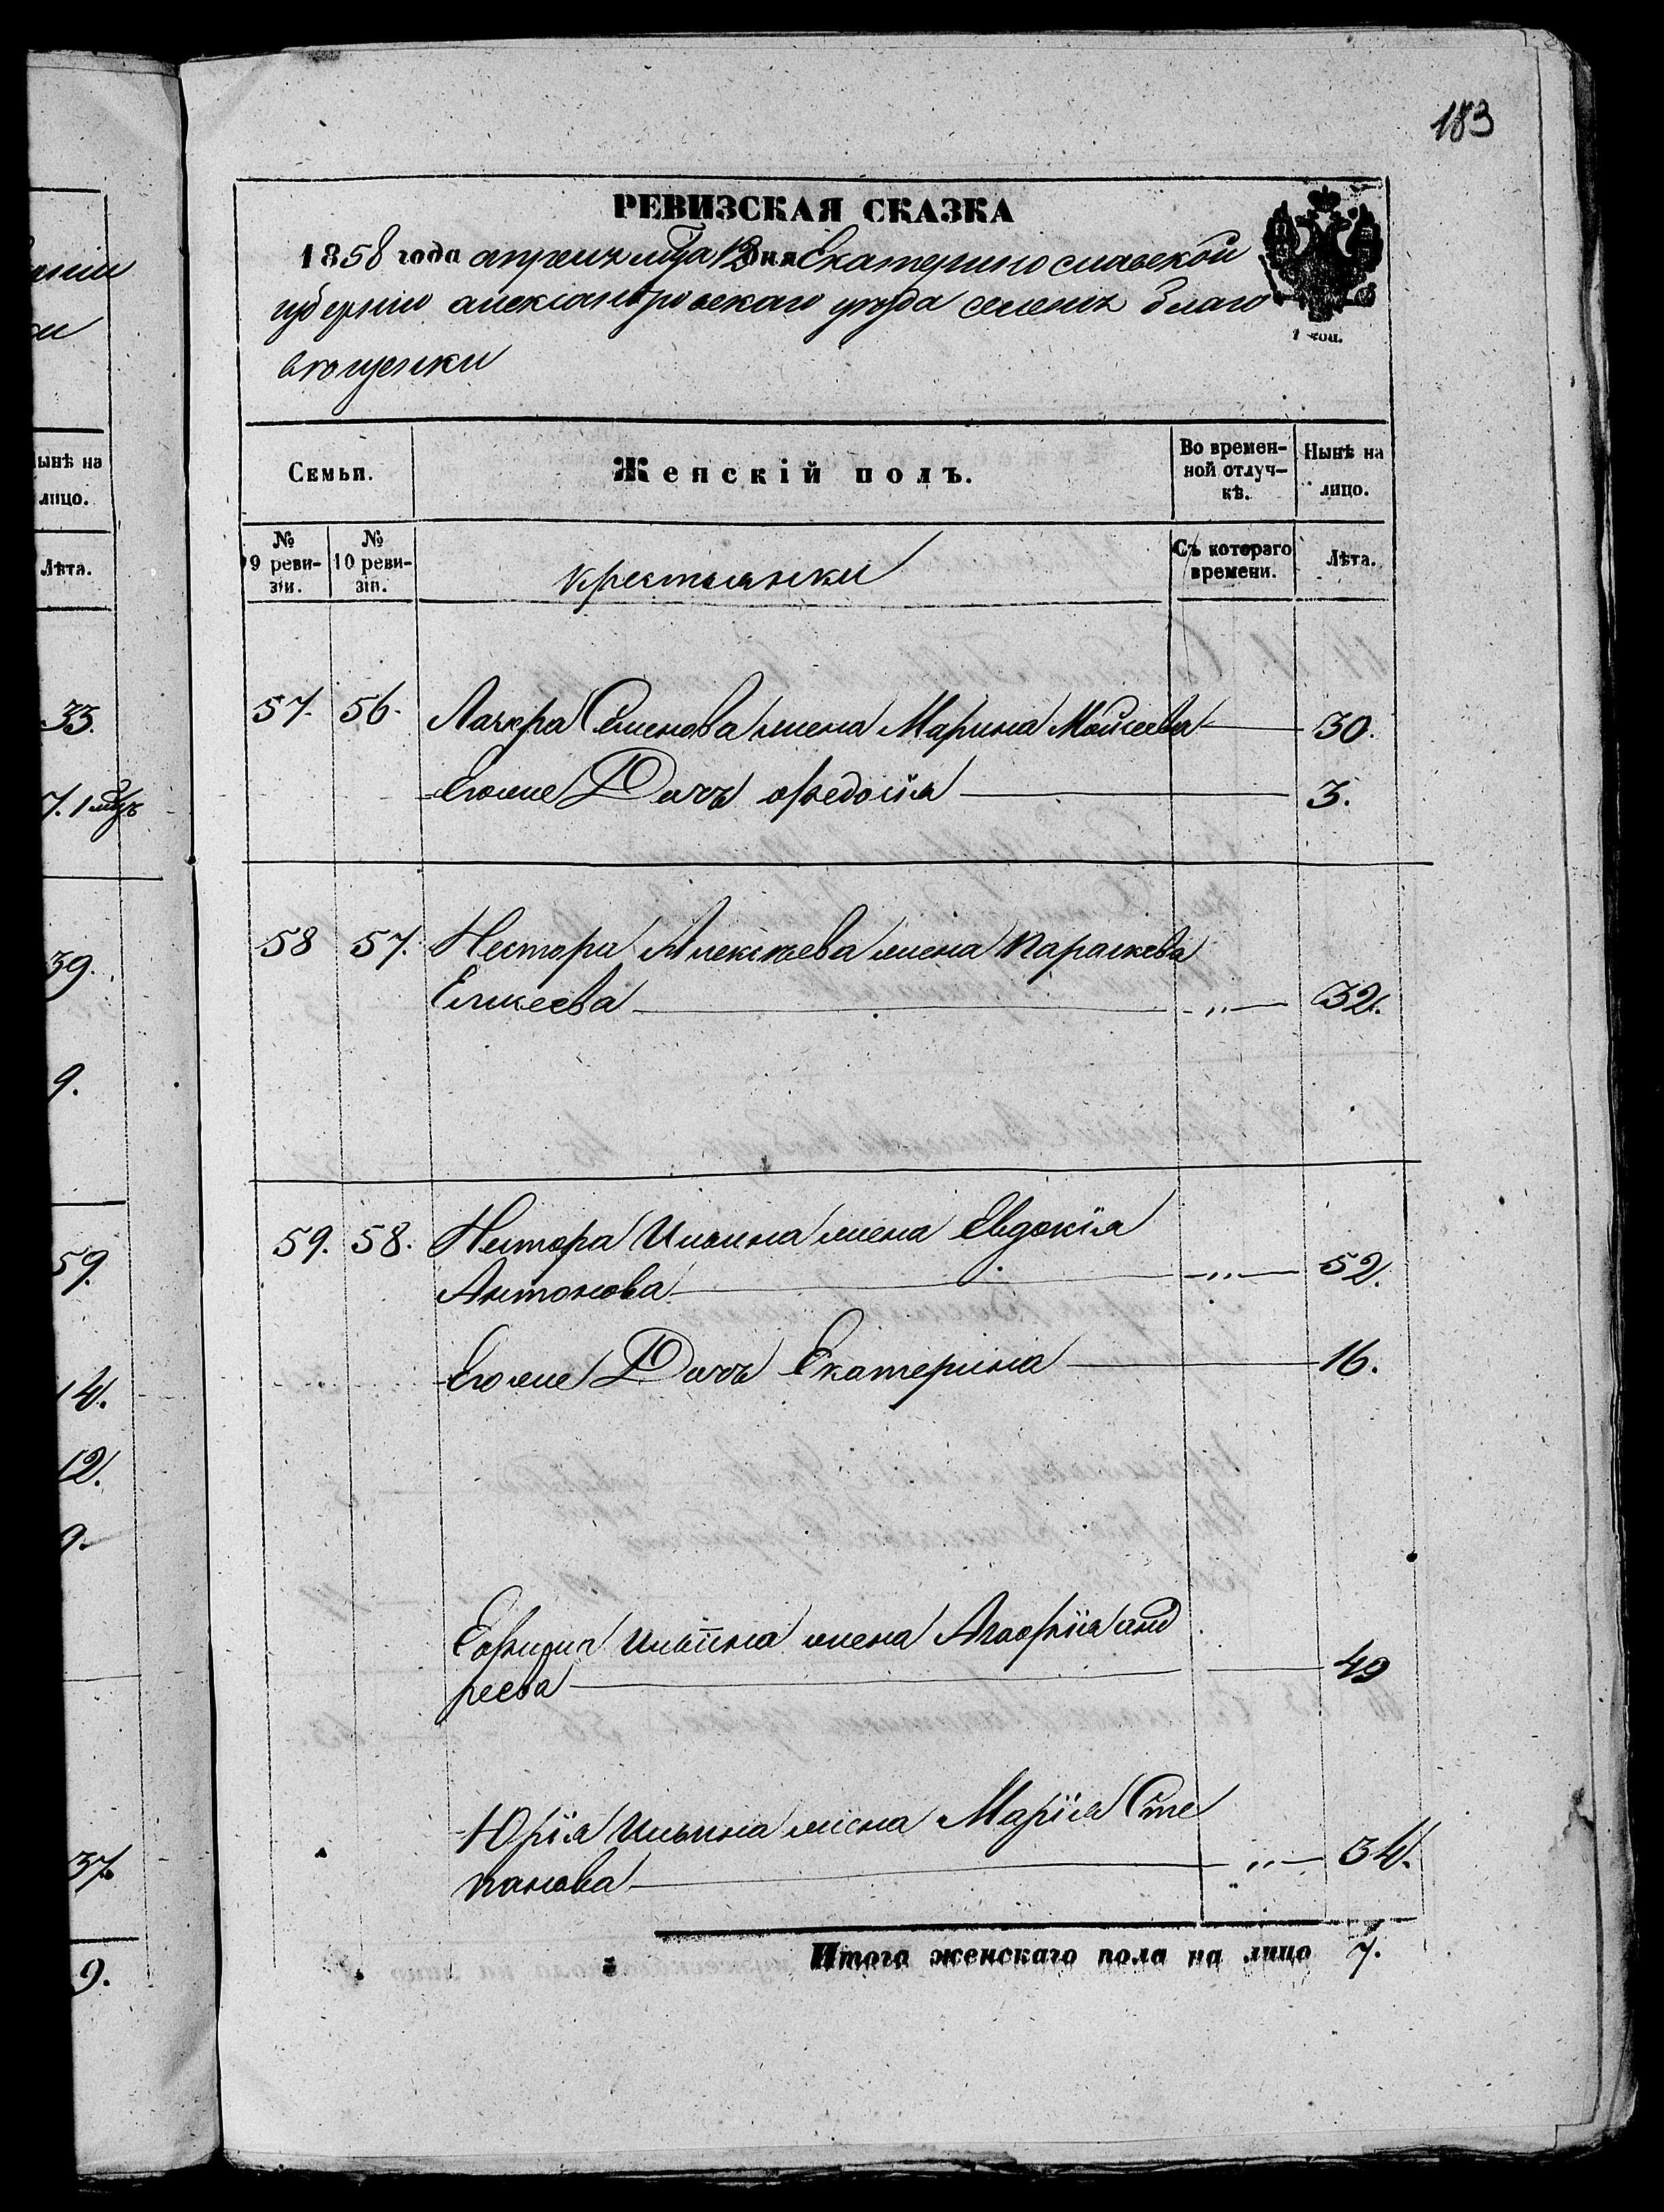 183
РЕВИЗСКАЯ СКАЗКА
1858 года апреля мца 12 дня Екатеринославской
губернии александровскаго уезда селения благо
вещенки
1 коп.
Семьи.
Женскій полъ.
Во времен-
ной отлуч-
кѣ.
Нынѣ на
лицо.
№
9 реви-
зіи.
№
10 реви-
зіи.
крестьянки
Съ котораго
времени.
Лѣта.
57. 56. Лазаря Семенова жена Марина Моисеева 30.
Егоже Дочь Федосія 3.
58 57. Нестора Алексѣева жена Параскева
Елисеева „ 32.
59. 58. Нестора Ильина жена Евдокія
Антонова „ 52.
Егоже Дочь Екатерина 16.
Ильина жена Агафія анд
реева 49
Юрія Ильина жена Марія Сте
панова „ 34.
Итого женскаго пола на лицо 7.
ынѣ на
лицо.
Лѣта.
33.
7. 1 мцъ
39.
9.
59.
14.
12.
9.
37.
9.